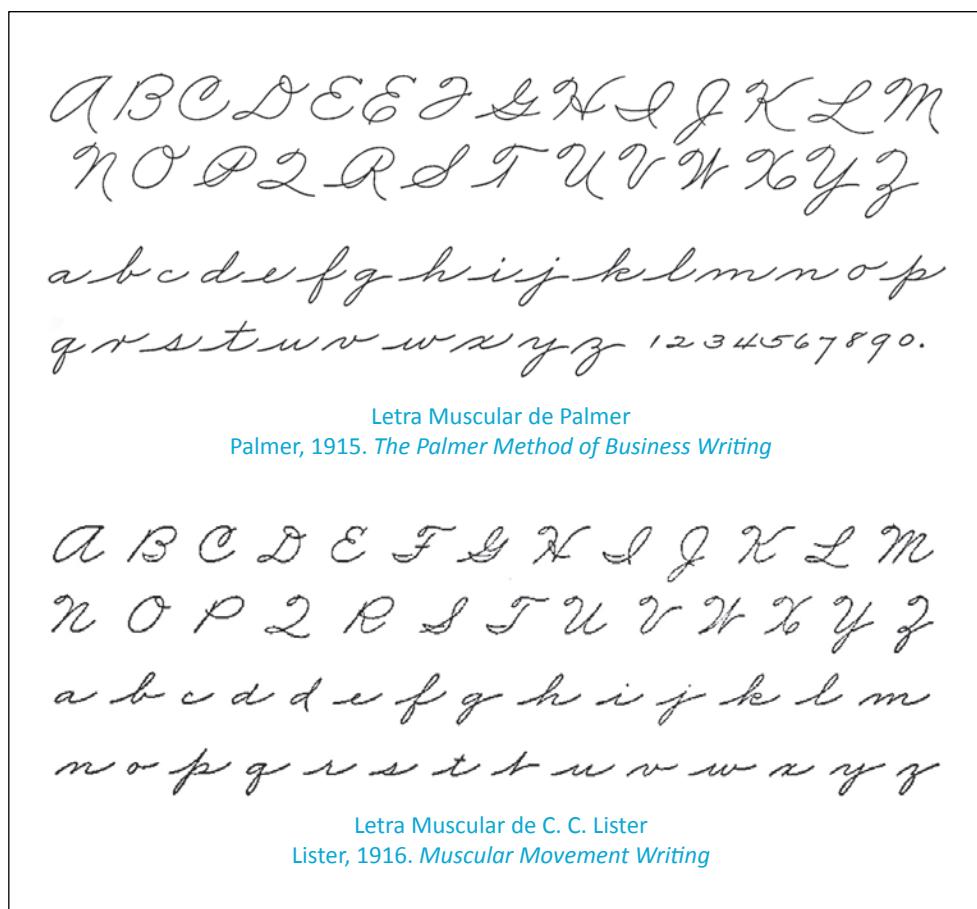 A B C D E E F G H I J K L M
N O P Q R S T U V W X Y Z
a b c d e f g h i j k l m n o p
q r s t u v w x y z 1 2 3 4 5 6 7 8 9 0.
Letra Muscular de Palmer
Palmer, 1915. The Palmer Method of Business Writing
A B C D E F G H I J K L M
N O P Q R S T U V W X Y Z
a b c d d e f g h i j k l m
n o p q r s t t u v w x y z
Letra Muscular de C. C. Lister
Lister, 1916. Muscular Movement Writing